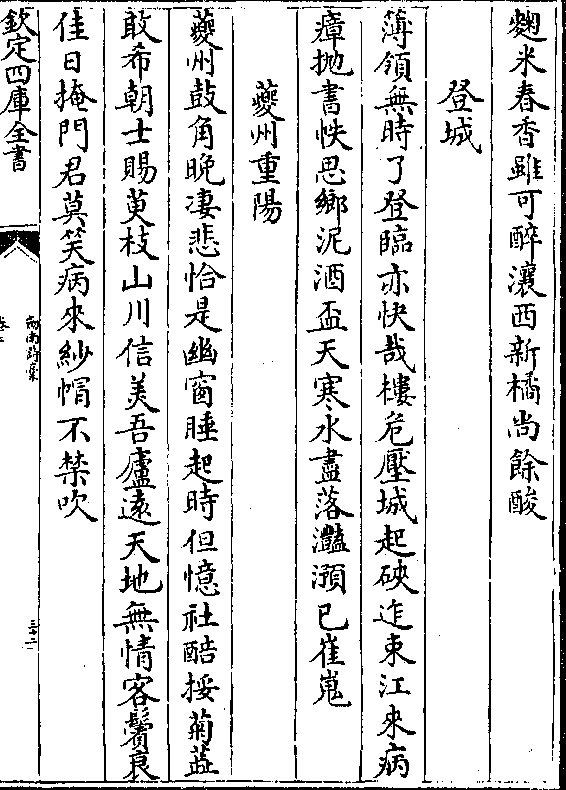 麴米春香雖可醉瀼西新橘尚餘酸
登城
薄領無時了登臨亦快哉樓危壓城起硤迮束江來病
瘴抛書怢思鄉泥酒盃天寒水盡落灩澦已崔嵬
夔州重陽
夔州鼓角晚凄悲恰是幽窗睡起時但憶社醅挼菊蕋
敢希朝士賜萸枝山川信美吾廬遠天地無情客鬢衰
佳日掩門君莫笑病來紗帽不禁吹
欽定四庫全書
劍南詩稾